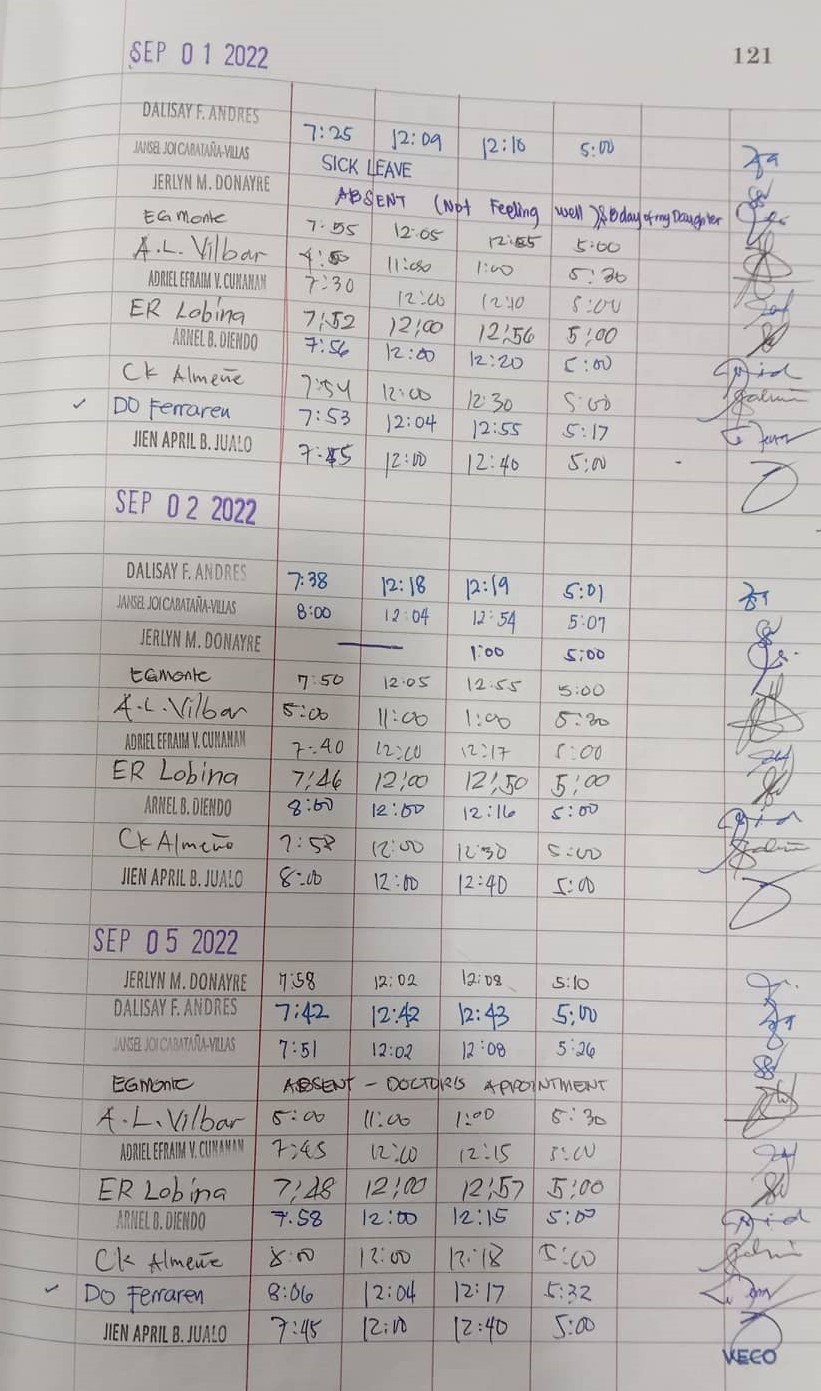 SEP 01 2022 121
DALISAY F. ANDRES 7:25 12:09 12:10 5:00
JANSEL JOI CABATAÑA-VILLAS SICK LEAVE
JERLYN M. DONAYRE ABSENT (Not Feeling well) Bday of my Daughter
EGMonte 7:55 12:05 12:55 5:00
A.L. Vilbar 11:00 1:00 5:30
ADRIEL EFRAIM V. CUNANAN 7:30 12:00 12:10 5:00
ER Lobina 7:52 12:00 12:56 5:00
ARNEL B. DIENDO 7:56 12:00 12:20 5:00
CK Almeñe 7:54 12:00 12:30 5:00
DO Ferraren 7:53 12:04 12:55 5:17
JIEN APRIL B. JUALO 7:45 12:00 12:40 5:00
SEP 02 2022
DALISAY F. ANDRES 7:38 12:18 12:19 5:01
JANSEL JOI CABATAÑA-VILLAS 8:00 12:04 12:54 5:07
JERLYN M. DONAYRE — 1:00 5:00
EGMonte 7:50 12:05 12:55 5:00
A.L. Vilbar 5:00 11:00 1:00 5:30
ADRIEL EFRAIM V. CUNANAN 7:40 12:00 12:17 5:00
ER Lobina 7:46 12:00 12:50 5:00
ARNEL B. DIENDO 8:00 12:00 12:16 5:00
CK Almeño 7:58 12:00 12:30 5:00
JIEN APRIL B. JUALO 8:00 12:00 12:40 5:00
SEP 05 2022
JERLYN M. DONAYRE 7:58 12:02 12:08 5:10
DALISAY F. ANDRES 7:42 12:42 12:43 5:00
JANSEL JOI CABATAÑA-VILLAS 7:51 12:02 12:08 5:26
EGMonte ABSENT - DOCTOR'S APPOINTMENT
A.L. Vilbar 5:00 11:00 1:00 5:30
ADRIEL EFRAIM V. CUNANAN 7:45 12:00 12:15 5:00
ER Lobina 7:48 12:00 12:57 5:00
ARNEL B. DIENDO 7:58 12:00 12:15 5:00
CK Almeñe 8:00 12:00 12:18 5:00
DO Ferraren 8:06 12:04 12:17 5:32
JIEN APRIL B. JUALO 7:45 12:00 12:40 5:00
VECO